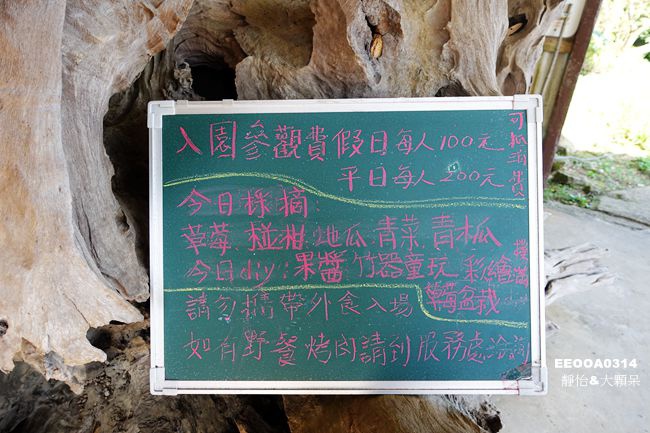 入園參觀費假日每人100元
平日每人200元
可抵消費
今日採摘：
草莓 椪柑 地瓜 青菜 青木瓜
今日diy：果醬 竹器童玩 彩繪
草莓盆栽
請勿攜帶外食入場
如有野餐烤肉請到服務處洽詢
EEOOA0314
靜怡&大顆呆